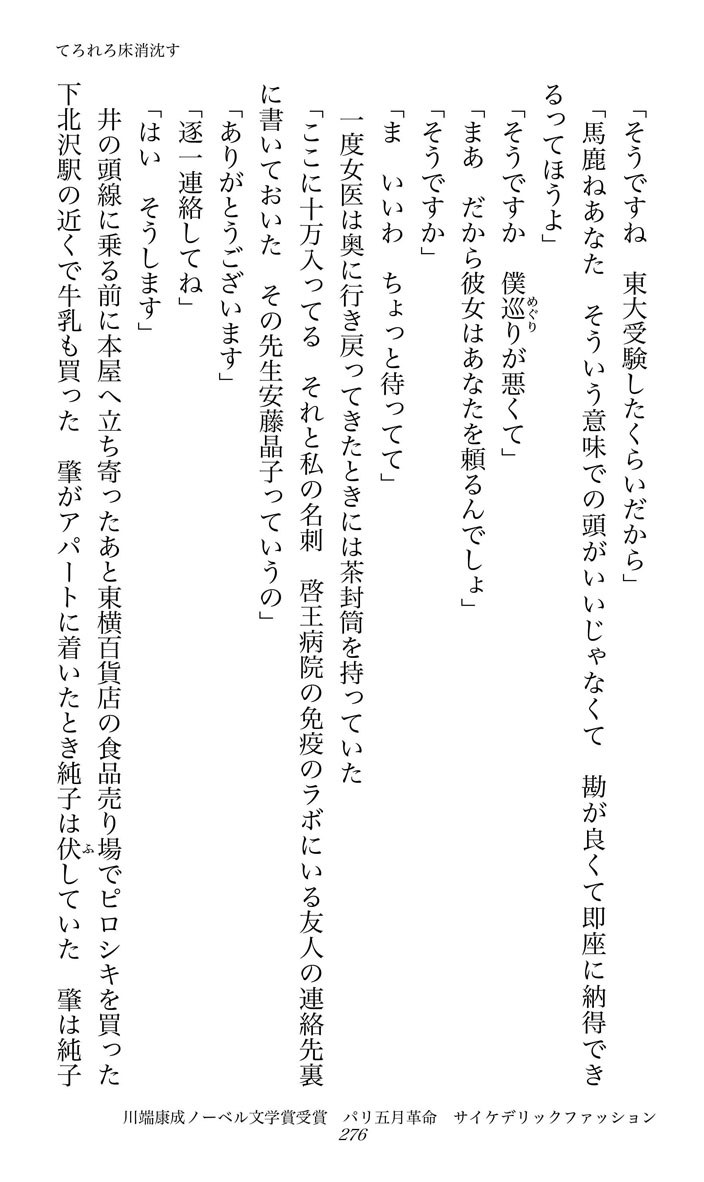 てろれろ床消沈す
「そうですね　東大受験したくらいだから」
「馬鹿ねあなた　そういう意味での頭がいいじゃなくて　勘が良くて即座に納得でき
るってほうよ」
「そうですか　僕巡りが悪くて」
めぐり
「まあ　だから彼女はあなたを頼るんでしょ」
「そうですか」
「ま　いいわ　ちょっと待ってて」
一度女医は奥に行き戻ってきたときには茶封筒を持っていた
「ここに十万入ってる　それと私の名刺　啓王病院の免疫のラボにいる友人の連絡先裏
に書いておいた　その先生安藤晶子っていうの」
「ありがとうございます」
「逐一連絡してね」
「はい　そうします」
井の頭線に乗る前に本屋へ立ち寄ったあと東横百貨店の食品売り場でピロシキを買った
下北沢駅の近くで牛乳も買った　肇がアパートに着いたとき純子は伏していた　肇は純子
ふ
川端康成ノーベル文学賞受賞　パリ五月革命　サイケデリックファッション
276